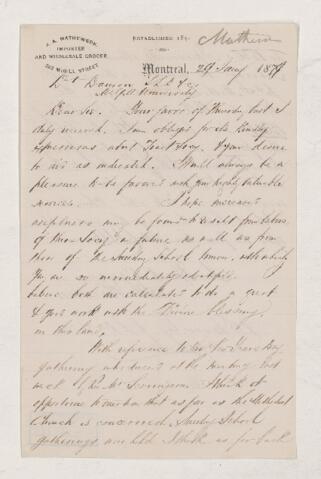 J. A. MATHEWSON,
IMPORTER
AND WHOLESALE GROCER,
202 McGILL STREET.
ESTABLISHED 183
Mathewson
Montreal, 29 Jany 1879
Dr Dawson L.L.D &c
McGill University
Dear Sir. Your favor of Thursday last I
duly received. I am obliged for its kindly
expressions about Tract Socy. & your desire
to as indicated. It will always be a
pleasure to be favored with your highly valuable
services. I hope increased
may be found to result from
of these Socys in future, as well as from
those of the Sunday School Union, with which
you are so identified. I
believe both are calculated to do a great
& good work with the Divine blessing,
in this land.
With reference to the New Years Day
gathering at the meeting last
week I think it
opportune to mention that as far as the Methodist
Church is concerned, Sunday School
gatherings are held I think as far back